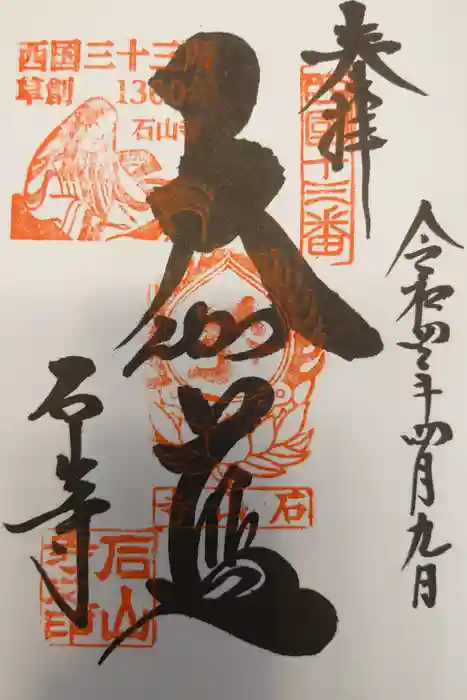 奉拝
西国十三番
令和四年四月九日
大伽藍
西国三十三所
草創 1300年
石山寺
石山寺
石山寺
石山寺印